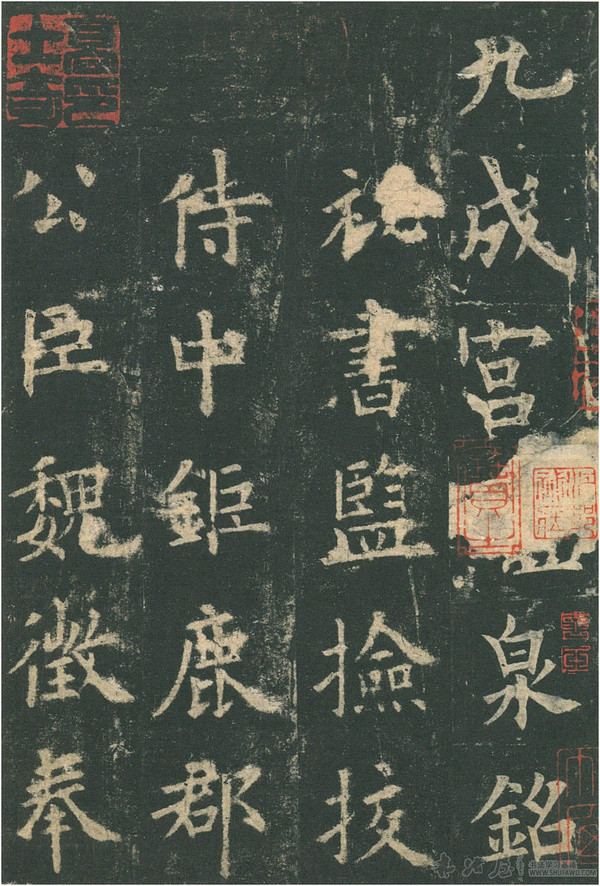 九成宮泉銘
祕書監撿挍
侍中鉅鹿郡
公臣魏徵奉
WWW.SHUFAWU.COM